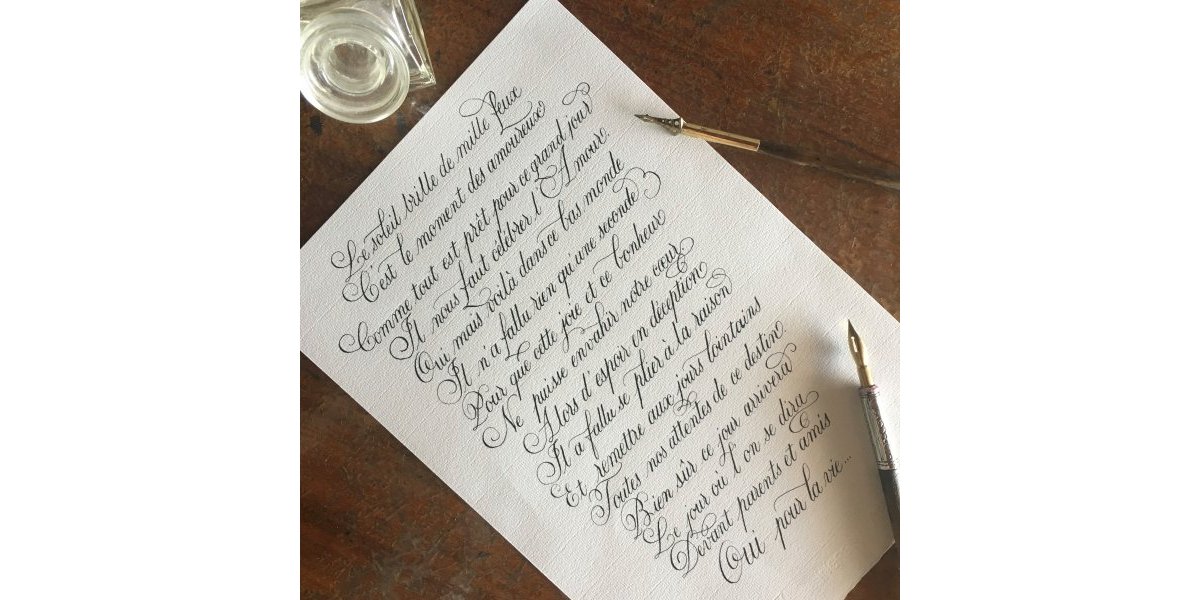 Le soleil brille de mille feux
C'est le moment des amoureux
Comme tout est prêt pour ce grand jour
Il nous faut célébrer l'Amour.
Oui mais voilà dans ce bas monde
Il n'a fallu rien qu'une seconde
Pour que cette joie et ce bonheur
Ne puisse envahir notre cœur
Alors d'espoir en déception
Il a fallu se plier à la raison
Et remettre aux jours lointains
Toutes nos attentes de ce destin.
Bien sûr ce jour arrivera
Le jour où l'on se dira
Devant parents et amis
Oui pour la vie...